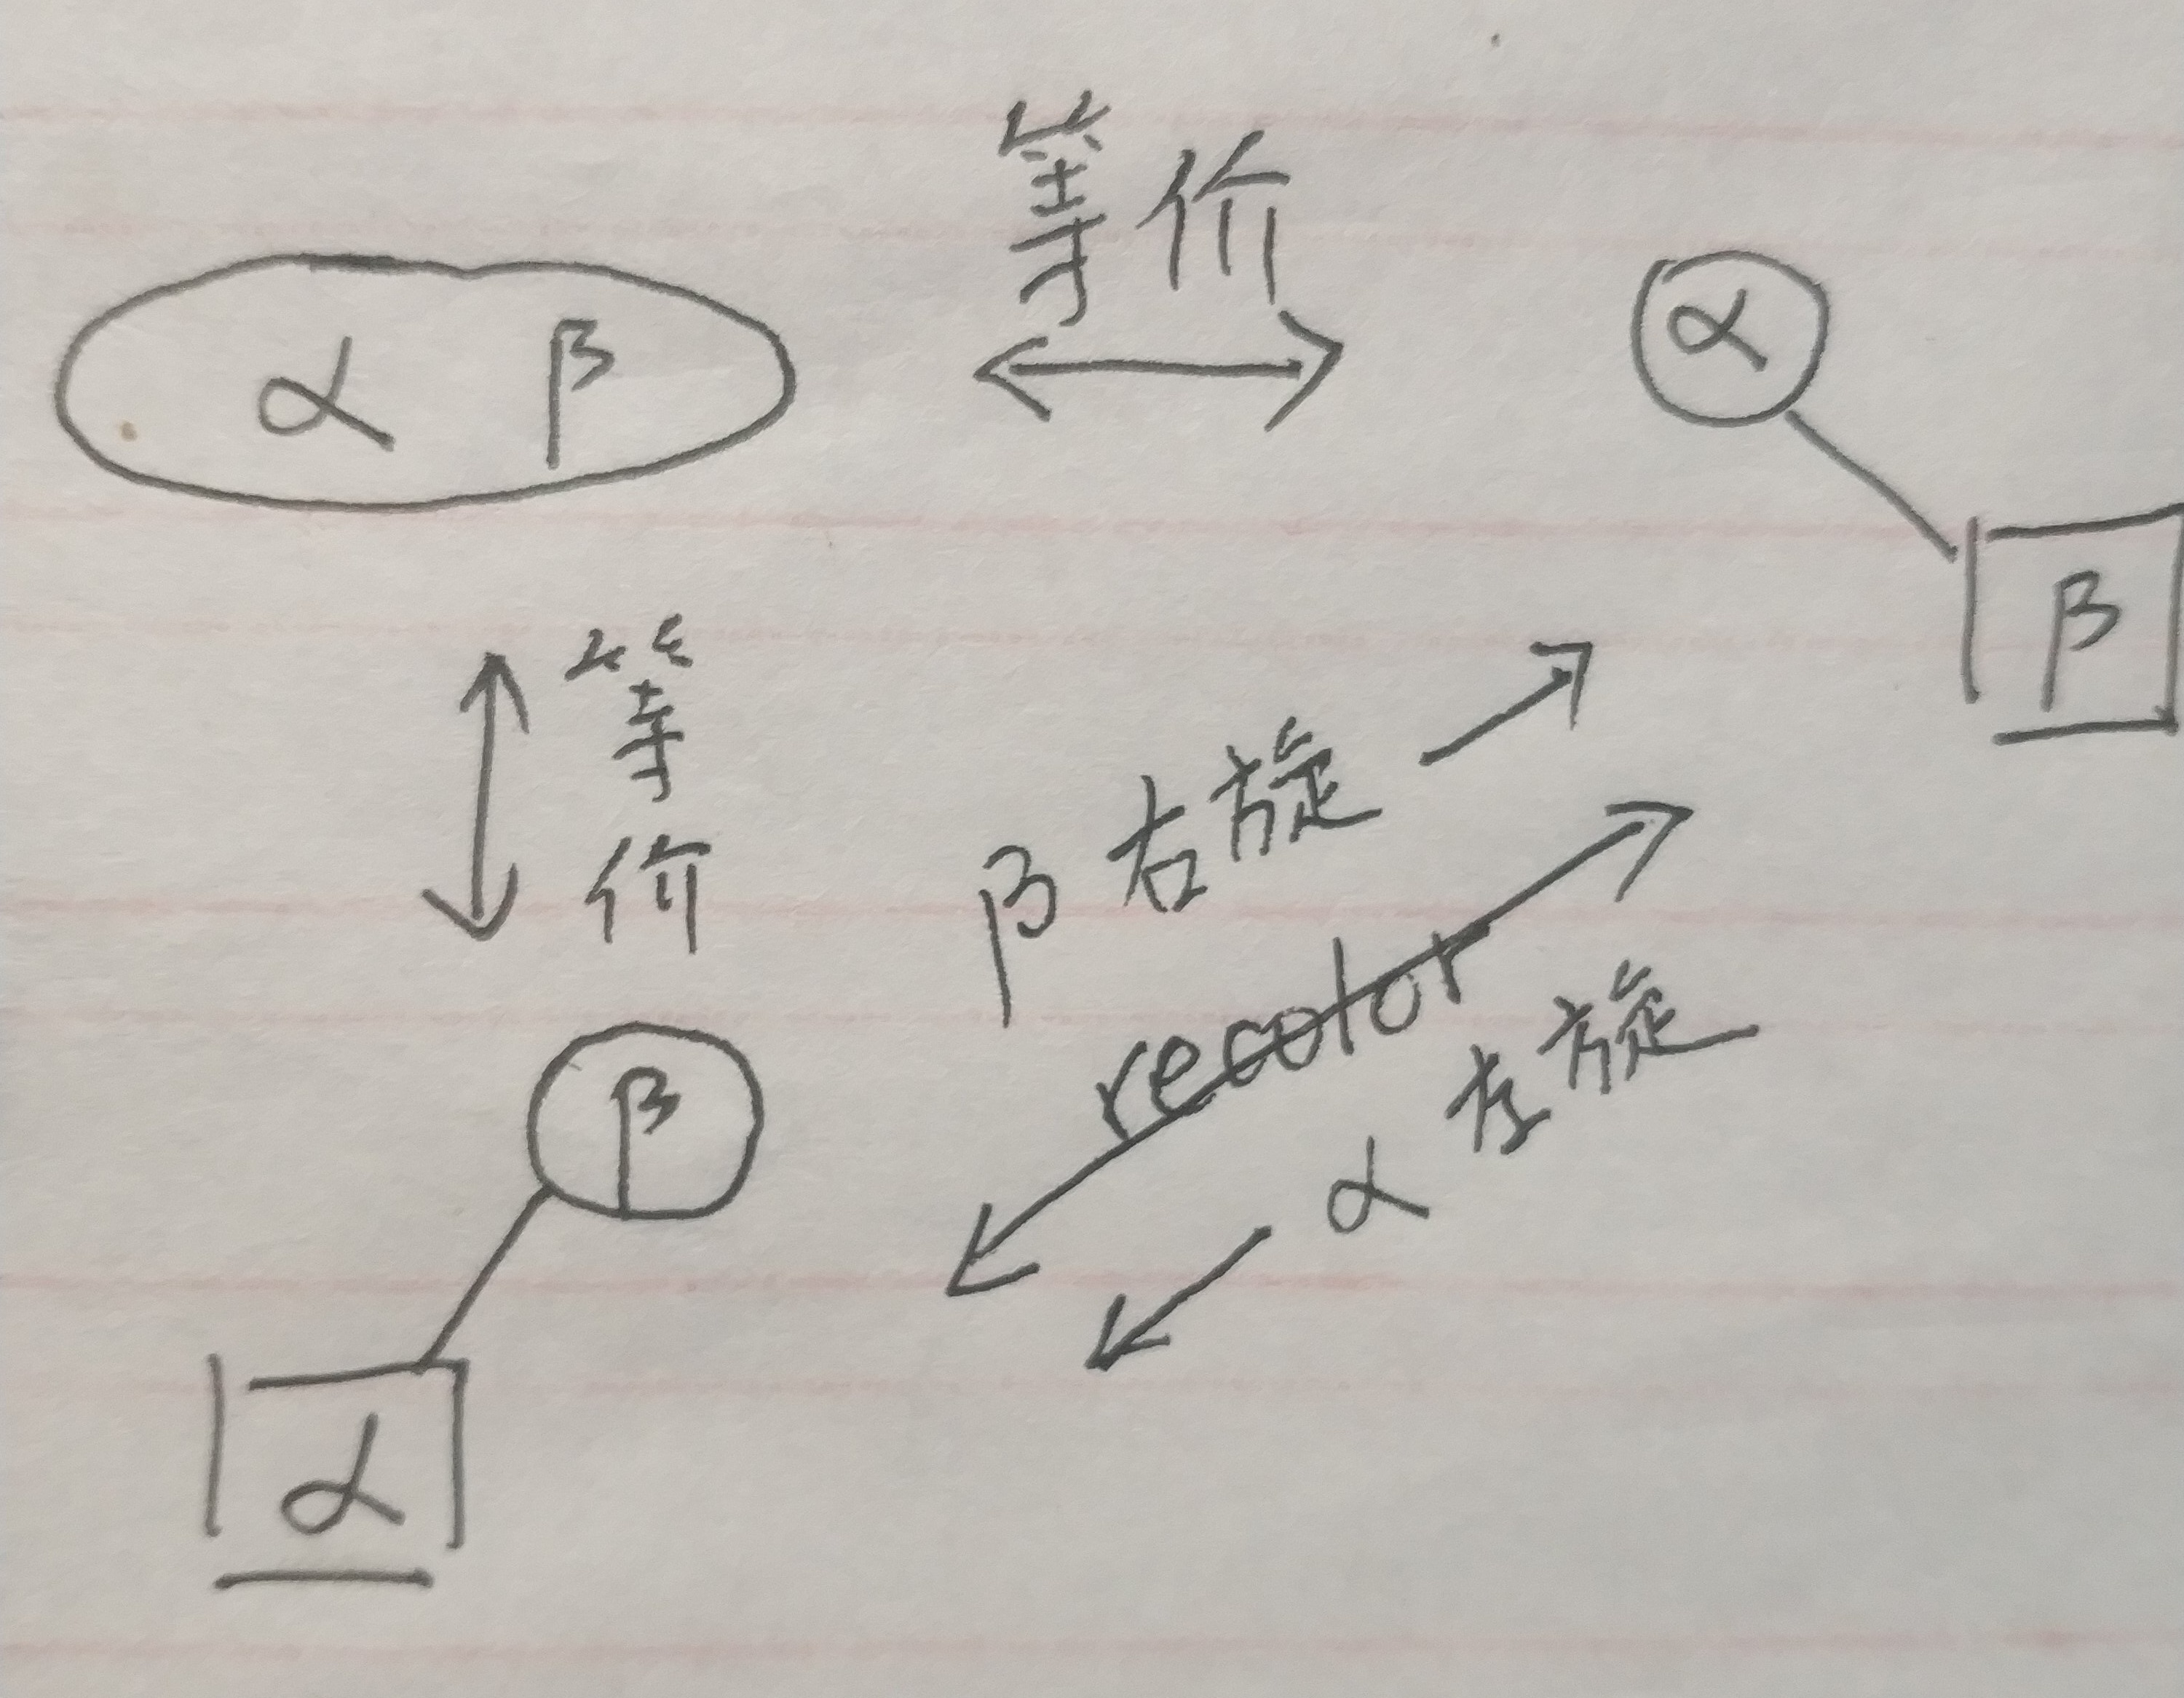 等价
α β
α
β
等
价
β 右旋
recolor
α 左旋
β
α